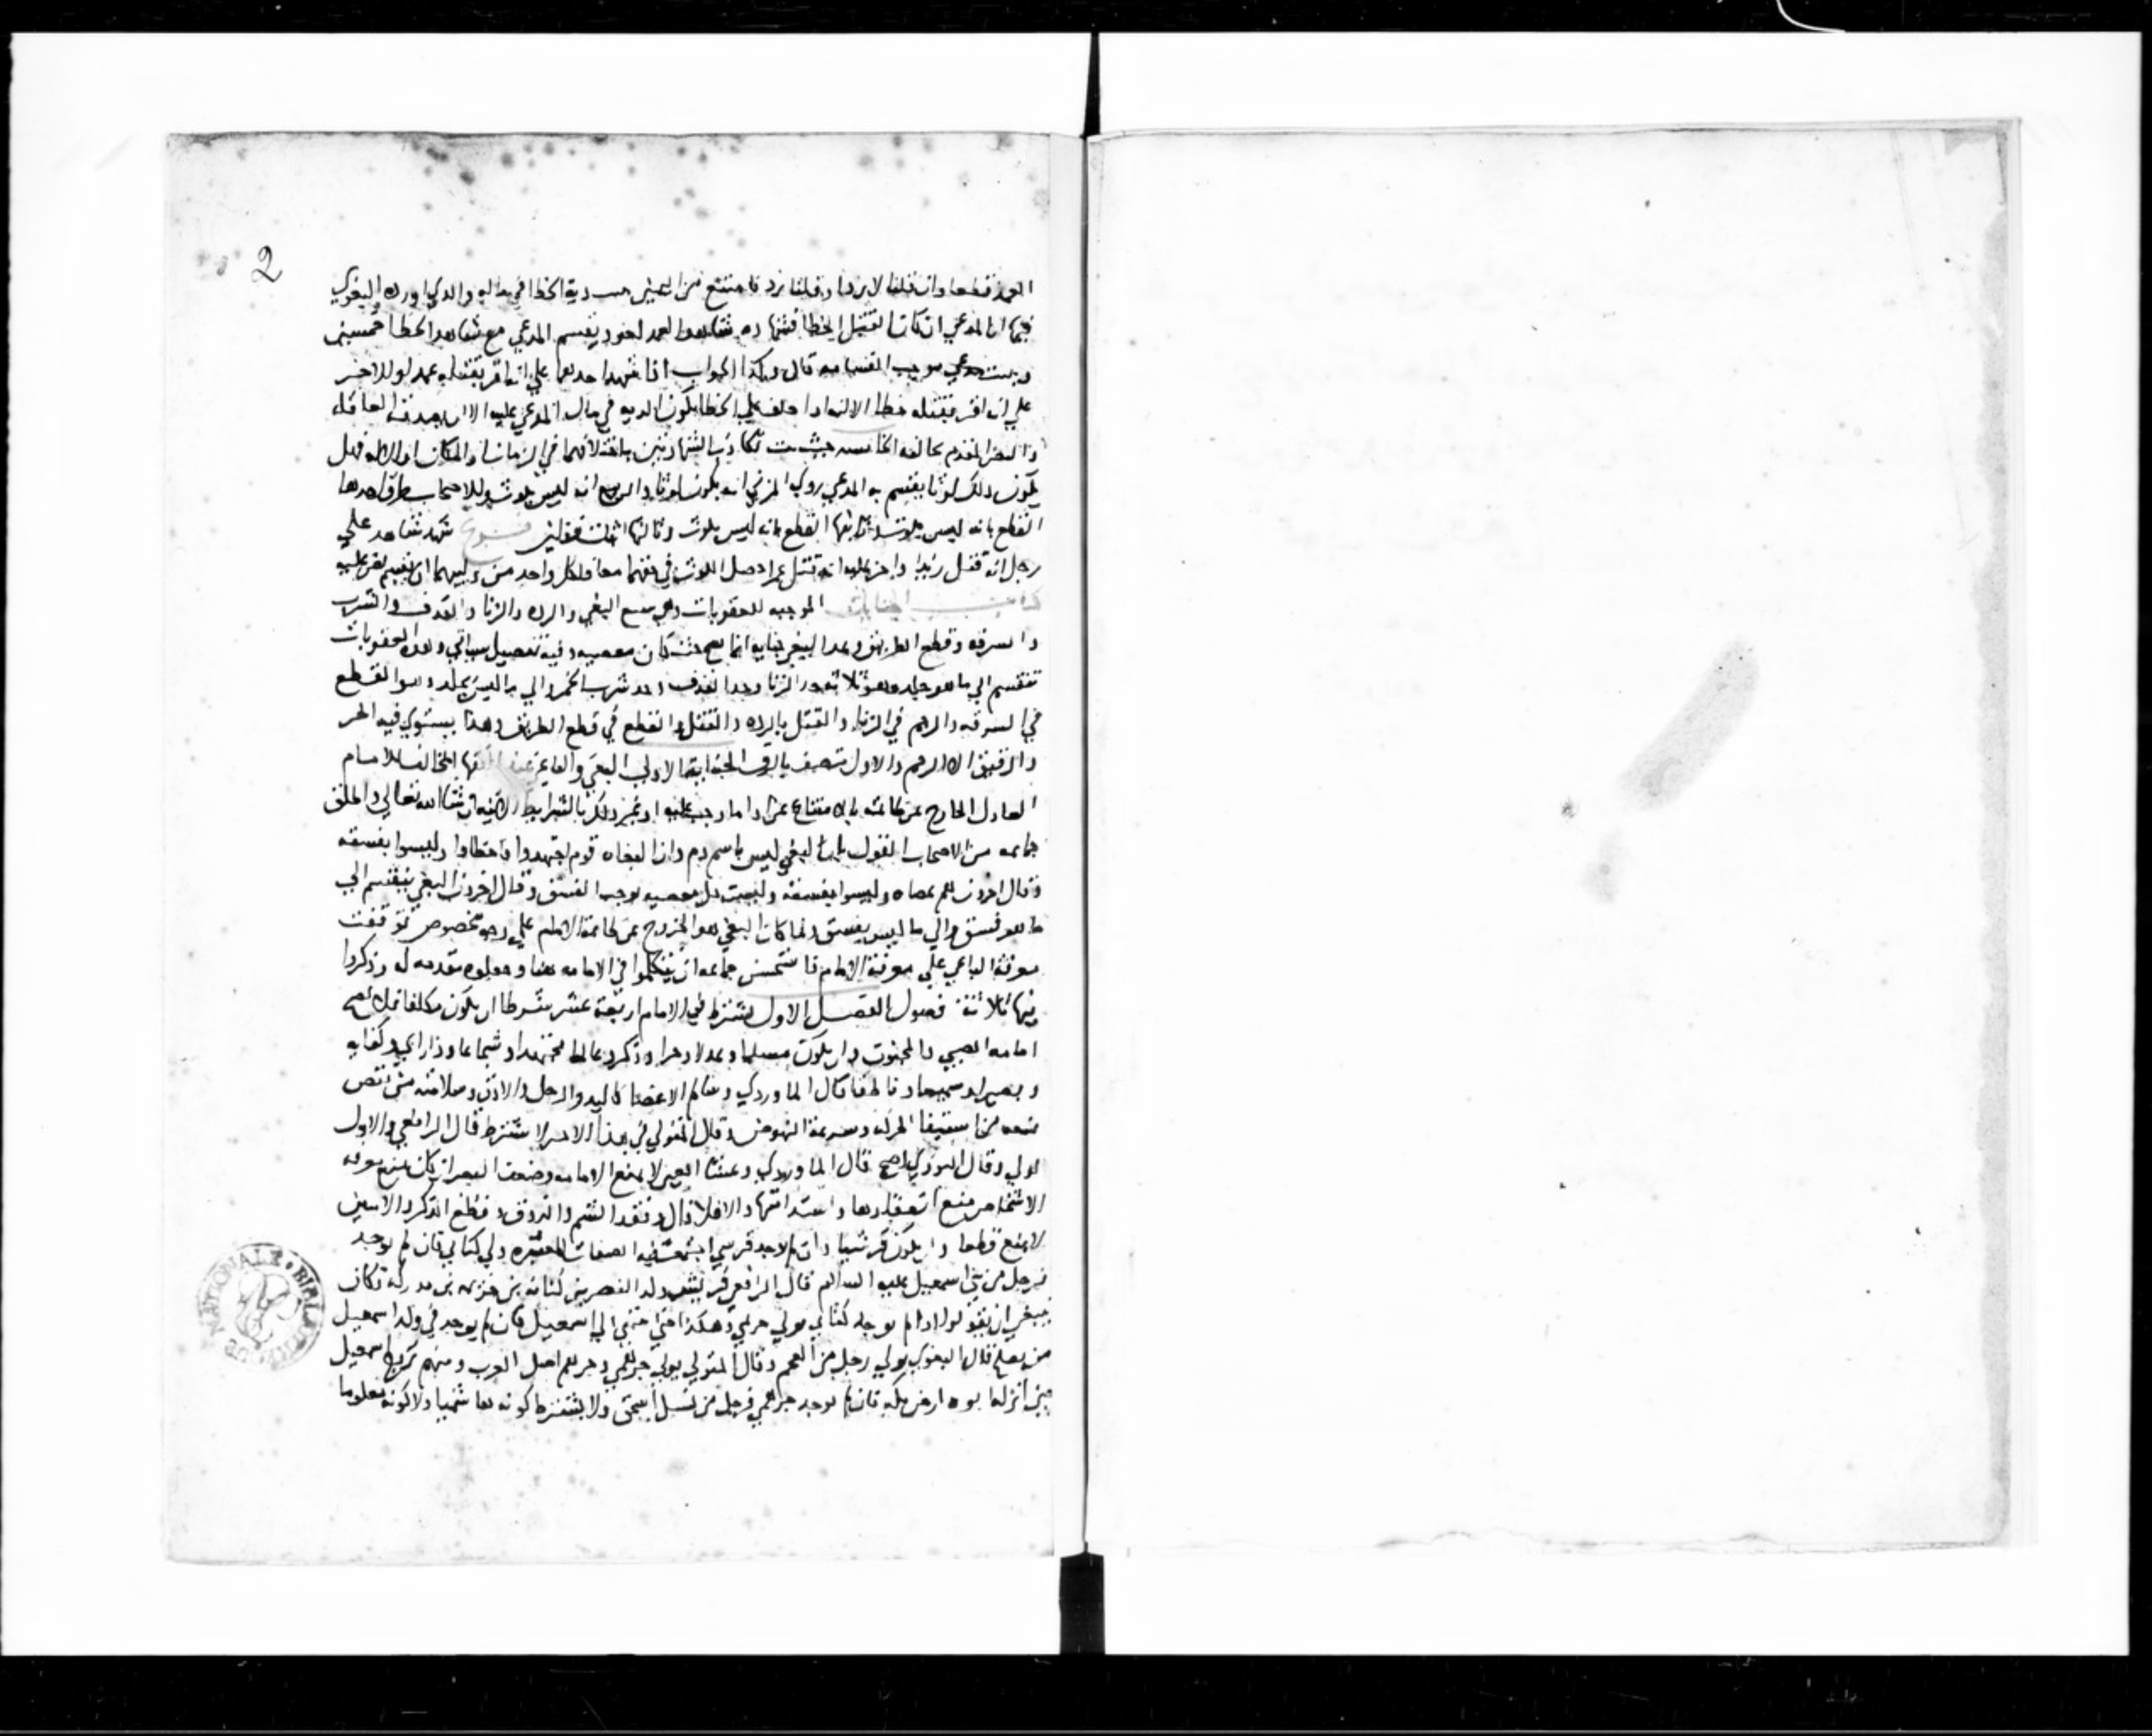 2
العمد قطعا وان قلنا لا يردا وقلنا يرد فامتنع من اليمين دية الخطا في ماله والذي اورده البغوي
فيها ان المدعي ان كان القتيل الخطا فشهاده شاهد العمد لغو ويقسم المدعي مع شاهد الخطا خمسين
موجب القسامه قال وكذا الجواب اذا شهد احدهما علي انه اقر بقتله عمدا والاخر
علي انه اقر بقتله خطا الا انه اذا حلف علي الخطا يكون الديه في مال المدعي عليه الا ان يصدقه العاقله
المتقدم يخالفه الخامسه حيث تكاذب الشهادتين باختلافهما في الزمان او المكان او الاله فهل
يكون ذلك لوثا يقسم به المدعي روي المزني انه يكون لوثا والربيع انه ليس بلوث وللاصحاب طرق احدها
القطع بانه ليس بلوث وثانيها القطع بانه ليس بلوث وثالثها اثبات قولين فرع شهد شاهد علي
رجل انه قتل زيدا واخر عليه انه قتل عمرا حصل اللوث في حقهما معا ولكل واحد من وليهما ان يقسم
كتاب الجنايات الموجبه للعقوبات وهي سبع البغي والرده والزنا والقذف والشرب
والسرقه وقطع الطريق وعد البغي جنايه انما يصح حيث كان معصيه وفيه تفصيل سياتي وهذه العقوبات
تنقسم الي ما هو جلد وهو ثلاثه حد الزنا وحد القذف وحد شرب الخمر والي ما ليس بجلد وهو القطع
في السرقه والرجم في الزنا والقتل بالرده والقتل والقطع في قطع الطريق وهذا يستوي فيه الحر
والرقيق الا الرجم والاول يتنصف بالرق الجنايه الاولي البغي والباغي المخالف للامام
العادل الخارج عن طاعته بالامتناع عن ادا ما وجب عليه او غير ذلك بالشرايط الاتيه ان شا الله تعالي واطلق
جماعه من الاصحاب القول بان البغي ليس باسم ذم وان البغاه قوم اجتهدوا فاخطاوا وليسوا بفسقه
وقال اخرون هم عصاه وليسوا بفسقه وليست كل معصيه توجب الفسق وقال اخرون البغي ينقسم الي
ما هو فسق والي ما ليس بفسق ولما كان البغي هو الخروج عن طاعة الامام علي وجه مخصوص توقفت
معرفة الباغي علي معرفة الامام فاستحسن جماعه ان يتكلموا في الامامه هنا وجعلوه مقدمه له وذكروا
فيها ثلاثة فصول الفصل الاول يشترط في الامام اربعة عشر شرطا ان يكون مكلفا فلا تصح
امامه الصبي والمجنون وان يكون مسلما وعدلا وحرا وذكرا وعالما مجتهدا وشجاعا وذا راي وكفايه
وبصيرا وسميعا وناطقا قال الماوردي وسالم الاعضا كاليد والرجل والاذن وسلامته من نقص
يمنعه من استيفا الحركه وسرعة النهوض وقال المتولي في هذا الامر لا يشترط قال الرافعي والاول
اولي وقال النووي اصح قال الماوردي وعشا العين لا يمنع الامامه وضعف البصر ان كان يمنع معرفه
الاشخاص منع انعقادها واستدامتها والا فلا قال وفقد الشم والذوق وقطع الذكر والانثيين
لا يمنع قطعا وان يكون قرشيا وان لم يوجد قرشي اجتمعت فيه الصفات المعتبره ولي كناني فان لم يوجد
فرجل من بني اسمعيل عليه السلام قال الرافعي قريش ولد النضر بن كنانه بن خزيمه بن مدركه فكان
ينبغي ان يقولوا اذا لم يوجد كناني يولي خزيمي وهكذا حتي ينتهي الي اسمعيل فان لم يوجد في ولد اسمعيل
من يصلح قال البغوي يولي رجل من العجم وقال المتولي يولي جرهمي وجرهم اصل العرب ومنهم تزوج اسمعيل
حين انزله ابوه ارض مكه فان لم يوجد جرهمي فرجل من نسل اسحق ولا يشترط كونه هاشميا ولا كونه معلوما